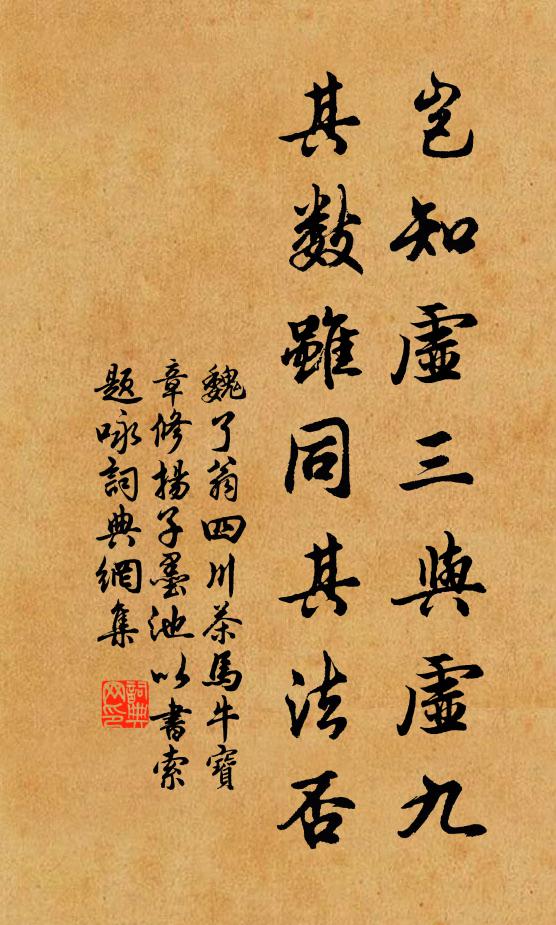 岂知虛三與虛九
其数雖同其法否
魏了翁四川茶馬牛寶
章修揚子墨池以書索
题咏詞典網集
詞典网印